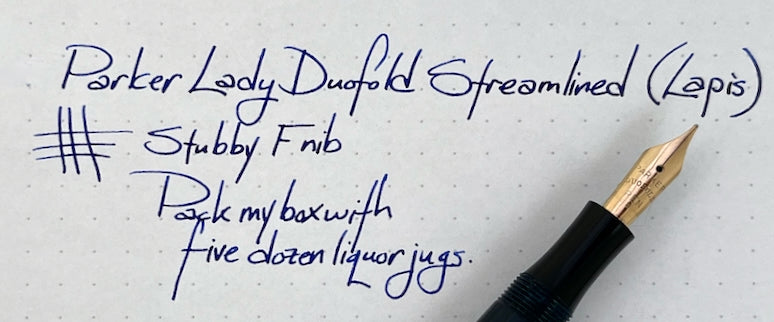 Parker Lady Duofold Streamlined (Lapis)
Stubby F nib
Pack my box with
five dozen liquor jugs.
PARKER
DUOFOLD
PEN